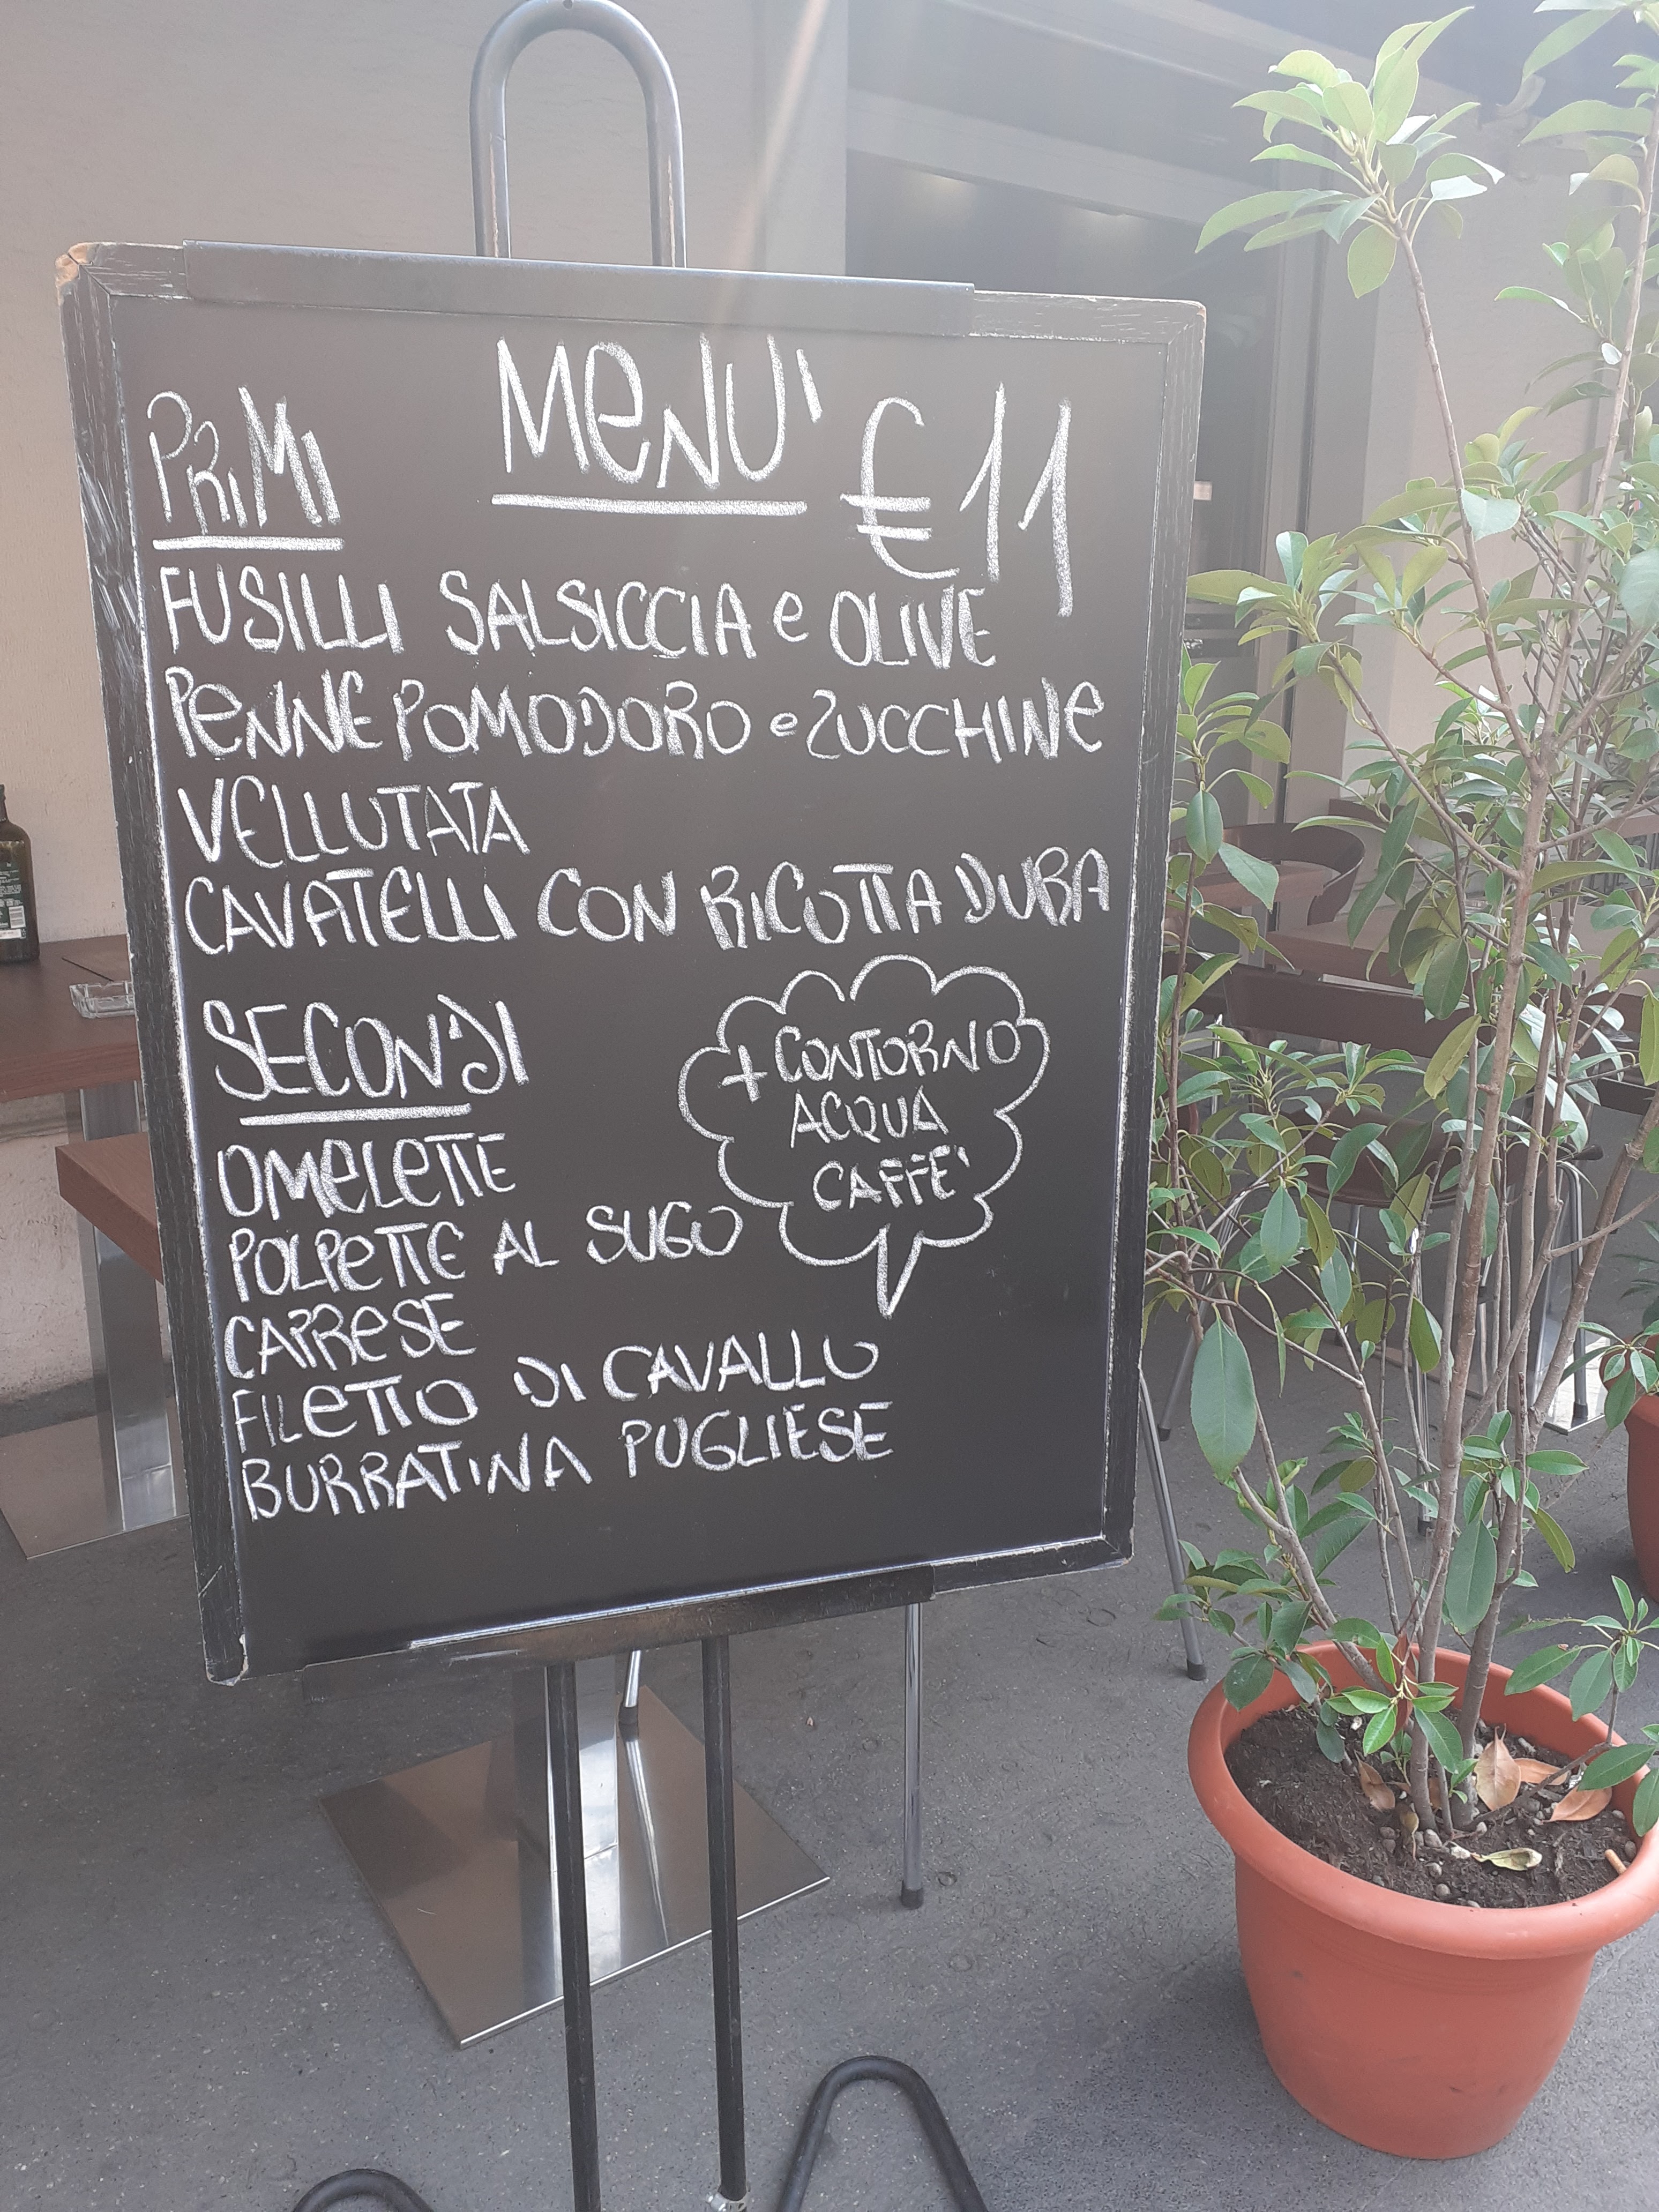 MENU'
€11
PRIMI
FUSILLI SALSICCIA e OLIVE
PENNE POMODORO e ZUCCHINE
VELLUTATA
CAVATELLI CON RICOTTA DURA
SECONDI
OMELETTE
POLPETTE AL SUGO
CAPRESE
FILETTO DI CAVALLO
BURRATINA PUGLIESE
+ CONTORNO
ACQUA
CAFFE'